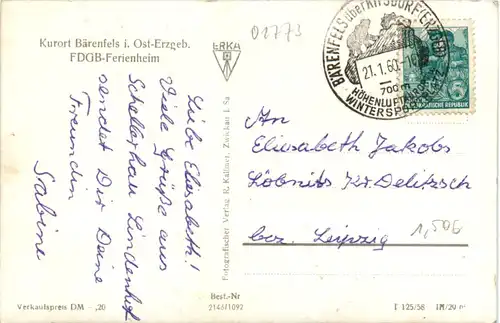 Kurort Bärenfels i. Ost-Erzgeb.
FDGB-Ferienheim
ERKA
01773
BÄRENFELS über KIPSDORF (ERZGEB)
21.1.60.-1
700 m
HÖHENLUFTKURORT
WINTERSPORTPLATZ
5
REPUBLIK
Liebe Elisabeth!
Viele Grüße aus
Schellerhau Lindenhof
sendet Dir Deine
Freundin
Sabine
Fotografischer Verlag R. Kallmer, Zwickau i. Sa
An
Elisabeth Jakobs
Löbnitz Kr. Delitzsch
bez. Leipzig
1,50b
Verkaufspreis DM -,20
Best.-Nr
2146/1092
T 125/58